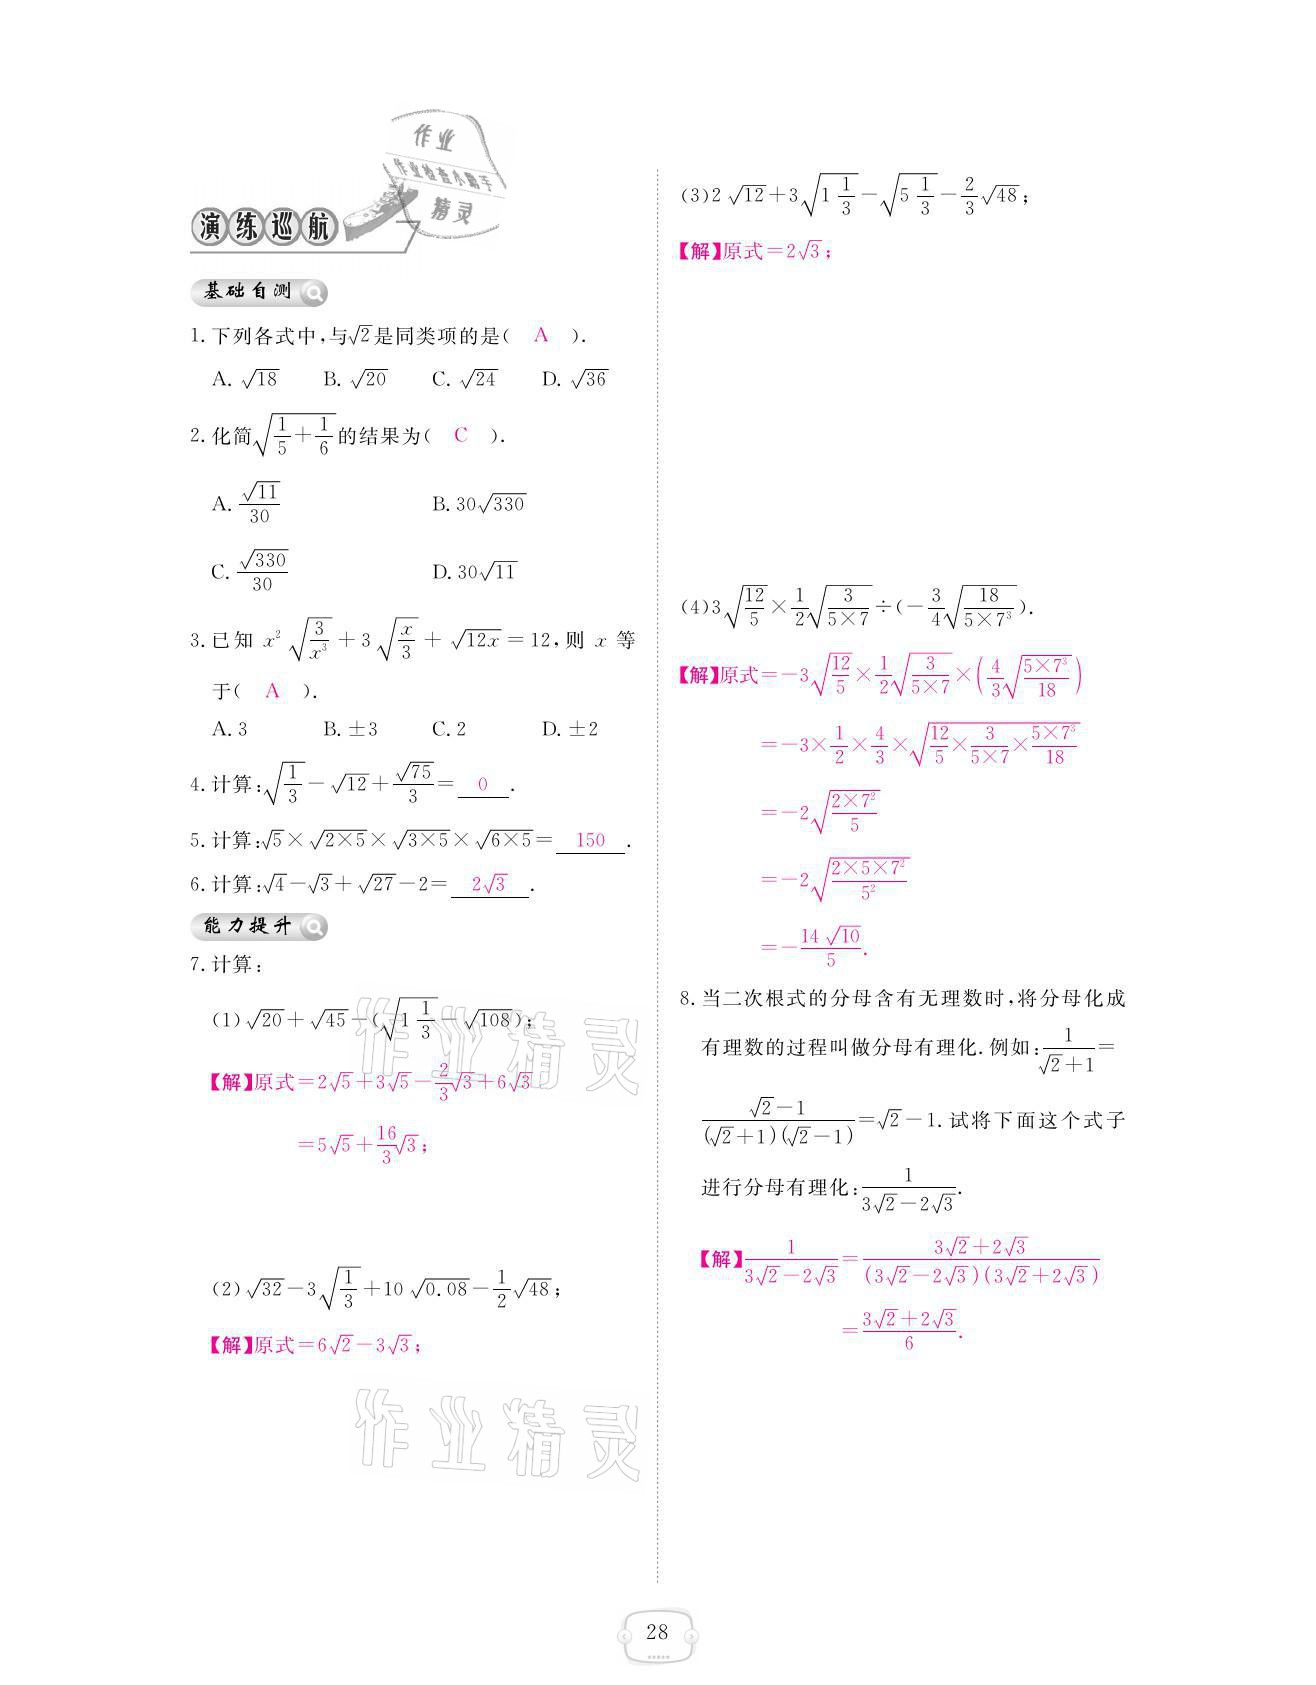 作业
作业检查小助手
精灵
演练巡航
基础自测
1. 下列各式中,与√2是同类项的是( A ).
A. √18 B. √20 C. √24 D. √36
2. 化简√(1/5+1/6)的结果为( C ).
A. √11/30 B. 30√330
C. √330/30 D. 30√11
3. 已知 x²√(3/x³)+3√(x/3)+√(12x)=12,则 x 等
于( A ).
A. 3 B. ±3 C. 2 D. ±2
4. 计算:√(1/3)-√12+√75/3= 0 .
5. 计算:√5×√(2×5)×√(3×5)×√(6×5)= 150 .
6. 计算:√4-√3+√27-2= 2√3 .
能力提升
7. 计算:
(1)√20+√45-(√(1 1/3)-√108);
【解】原式=2√5+3√5-2/3√3+6√3
=5√5+16/3√3;
(2)√32-3√(1/3)+10√0.08-1/2√48;
【解】原式=6√2-3√3;
作业精灵
作业精灵
(3)2√12+3√(1 1/3)-√(5 1/3)-2/3√48;
【解】原式=2√3;
(4)3√(12/5)×1/2√(3/(5×7))÷(-3/4√(18/(5×7³))).
【解】原式=-3√(12/5)×1/2√(3/(5×7))×(4/3√(5×7³/18))
=-3×1/2×4/3×√(12/5×3/(5×7)×5×7³/18)
=-2√(2×7²/5)
=-2√(2×5×7²/5²)
=-14√10/5.
8. 当二次根式的分母含有无理数时,将分母化成
有理数的过程叫做分母有理化. 例如:1/(√2+1)=
(√2-1)/((√2+1)(√2-1))=√2-1. 试将下面这个式子
进行分母有理化:1/(3√2-2√3).
【解】1/(3√2-2√3)=(3√2+2√3)/((3√2-2√3)(3√2+2√3))
=(3√2+2√3)/6.
28